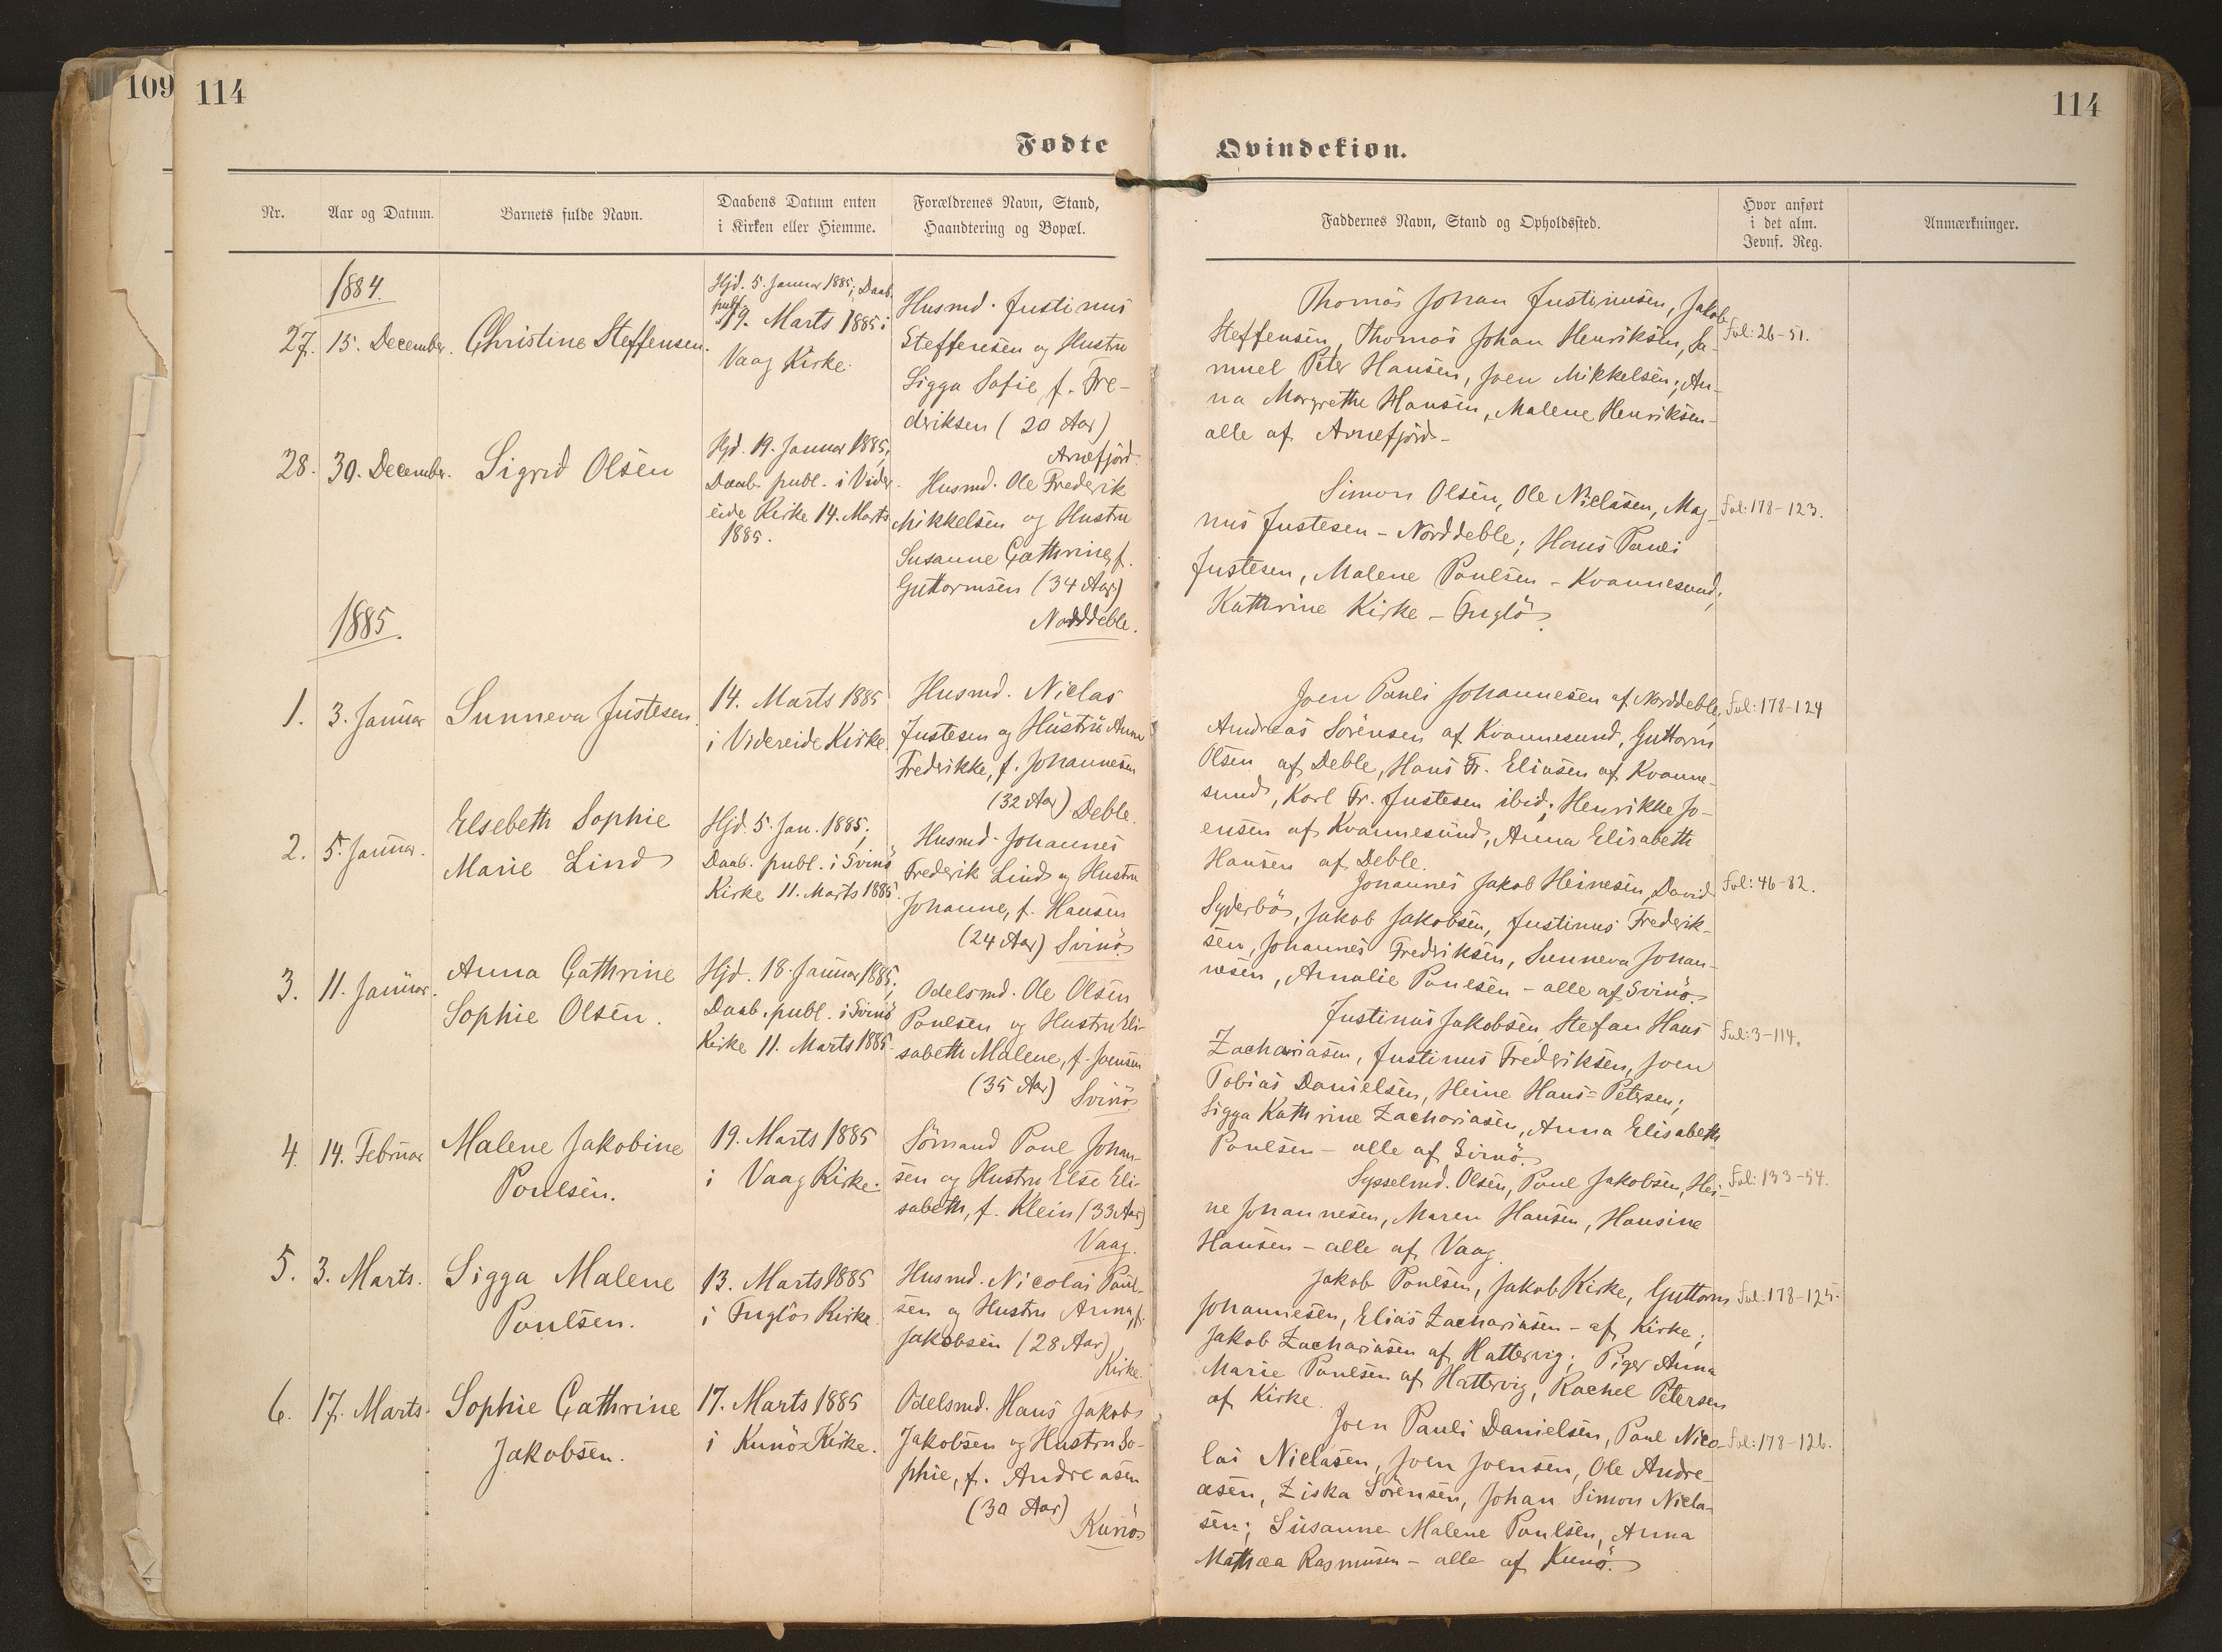 109
114
114
Fødte
Qvindekiøn.
Nr.
Aar og Datum.
Barnets fulde Navn.
Daabens Datum enten
i Kirken eller Hiemme.
Forældrenes Navn, Stand,
Haandtering og Bopæl.
Faddernes Navn, Stand og Opholdssted.
Hvor anført
i det alm.
Jevnf. Reg.
Anmærkninger.
1884.
27.
15. December.
Christine Steffensen.
Hjd. 5. Januar 1885; Daab.
publ.
19. Marts 1885 i
Vaag Kirke.
Husmd. Justinus
Steffensen og Hustru
Sigga Sofie f. Fre-
deriksen (20 Aar)
Arnefjord.
Thomas Johan Justinusen, Jakob
Steffensen, Thomas Johan Henriksen, Sa-
muel Peter Hansen, Joen Mikkelsen; An-
na Margrethe Hansen, Malene Henriksen-
alle af Arnefjord-
Fol: 26-51.
28.
30. December.
Sigrid Olsen
Hjd. 19. Januar 1885;
Daab. publ. i Vider-
eide Kirke 14. Marts
1885.
Husmd. Ole Frederik
Mikkelsen og Hustru
Susanne Cathrine, f.
Guttormsen (34 Aar)
Norddeble.
Simon Olsen, Ole Niclasen, Mag-
nus Justesen - Norddeble; Hans Pauli
Justesen, Malene Poulsen - Kvannesund;
Kathrine Kirke - Fuglö.
Fol: 178-123.
1885.
1.
3. Januar
Sunneva Justesen.
14. Marts 1885
i Videreide Kirke.
Husmd. Niclas
Justesen og Hustru Anna
Frederikke, f. Johannesen
(32 Aar) Deble.
Joen Pauli Johannesen af Norddeble,
Andreas Sörensen af Kvannesund, Guttorm
Olsen af Deble, Hans Fr. Eliasen af Kvanne-
sund, Karl Fr. Justesen ibid; Henrikke Jo-
ensen af Kvannesund, Anna Elisabeth
Hansen af Deble.
Fol: 178-124
2.
5. Januar.
Elsebeth Sophie
Marie Lind
Hjd. 5. Jan. 1885;
Daab. publ. i Svinö
Kirke 11. Marts 1885.
Husmd. Johannes
Frederik Lind og Hustru
Johanne, f. Hansen
(24 Aar) Svinö.
Johannes Jakob Heinesen, David
Syderbö, Jakob Jakobsen, Justinus Frederik-
sen, Johannes Fredriksen, Sunneva Johan-
nesen, Amalie Poulsen - alle af Svinö.
Fol: 46-82.
3.
11. Januar.
Anna Cathrine
Sophie Olsen.
Hjd. 18. Januar 1885;
Daab. publ. i Svinö
Kirke 11. Marts 1885.
Odelsmd. Ole Olsen
Poulsen og Hustru Eli-
sabeth Malene, f. Joensen
(35 Aar)
Svinö.
Justinus Jakobsen, Stefan Hans
Zachariasen, Justinus Frederiksen, Joen
Tobias Danielsen, Heine Hans-Petersen;
Sigga Kathrine Zachariasen, Anna Elisabeth
Poulsen - alle af Svinö.
Fol: 3-114.
4.
14. Februar
Malene Jakobine
Poulsen.
19. Marts 1885
i Vaag Kirke.
Sömand Poul Johan-
sen og Hustru Else Eli-
sabeth, f. Klein (33 Aar)
Vaag.
Sysselmd. Olsen, Poul Jakobsen, Hei-
ne Johannesen, Maren Hansen, Hansine
Hansen - alle af Vaag
Fol: 133-54.
5.
3. Marts.
Sigga Malene
Poulsen.
13. Marts 1885
i Fuglö Kirke.
Husmd. Nicolai Poul-
sen og Hustru Anna, f.
Jakobsen (28 Aar)
Kirke.
Jakob Poulsen, Jakob Kirke, Guttorm
Johannesen, Elias Zachariasen - af Kirke;
Jakob Zachariasen af Hattervig; Piger Anna
Marie Poulsen af Hattervig, Rachel Petersen
af Kirke.
Fol: 178-125.
6.
17. Marts.
Sophie Cathrine
Jakobsen.
17. Marts 1885
i Kunö Kirke.
Odelsmd. Hans Jakob
Jakobsen og Hustru So-
phie, f. Andreasen
(30 Aar)
Kunö
Joen Pauli Danielsen, Poul Nico-
lai Niclasen, Joen Joensen, Ole Andre-
asen, Ziska Sörensen, Johan Simon Nicla-
sen; Susanne Malene Poulsen, Anna
Mathea Rasmusen - alle af Kunö.
Fol: 178-126.